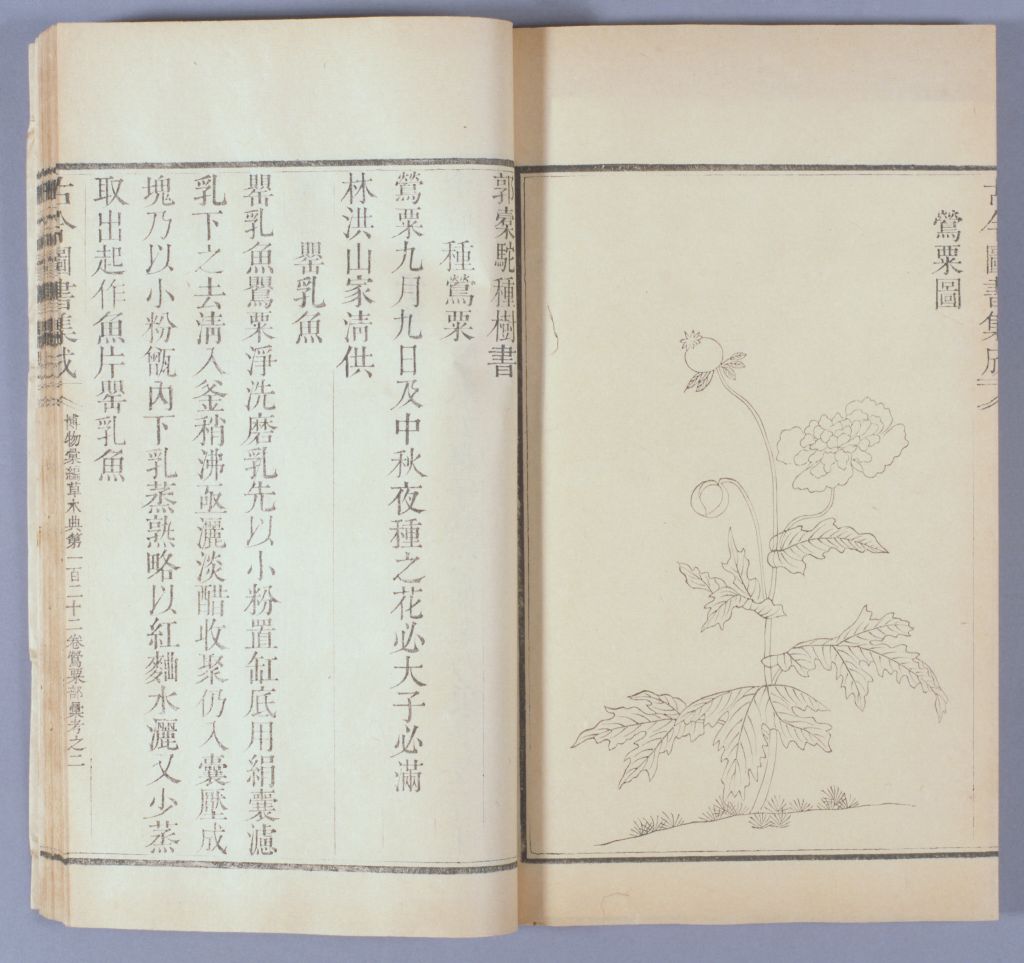 古今圖書集成
鶯粟圖
郭橐駝種樹書
種鶯粟
鶯粟九月九日及中秋夜種之花必大子必滿
林洪山家清供
罌乳魚
罌乳魚罌粟淨洗磨乳先以小粉置缸底用絹囊濾
乳下之去清入釜稍沸亟灑淡醋收聚仍入囊壓成
塊乃以小粉甑內下乳蒸熟略以紅麯水灑又少蒸
取出起作魚片罌乳魚
古今圖書集成
博物彙編草木典第一百二十二卷鶯粟部彙考之二